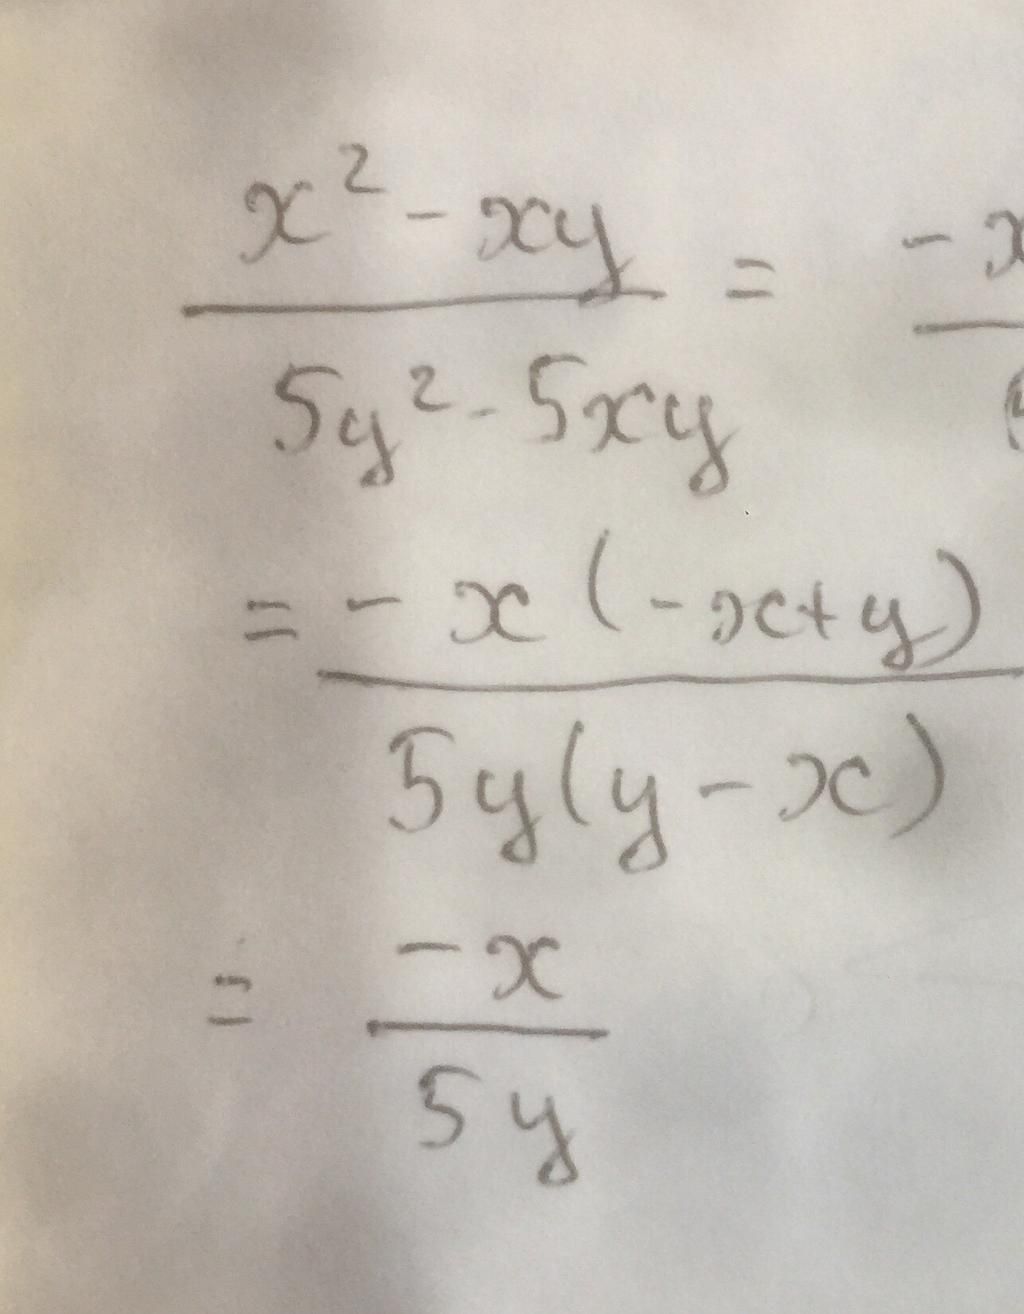 x² - xy / 5y² - 5xy = - x
= - x (-x+y) / 5y(y - x)
= - x / 5y